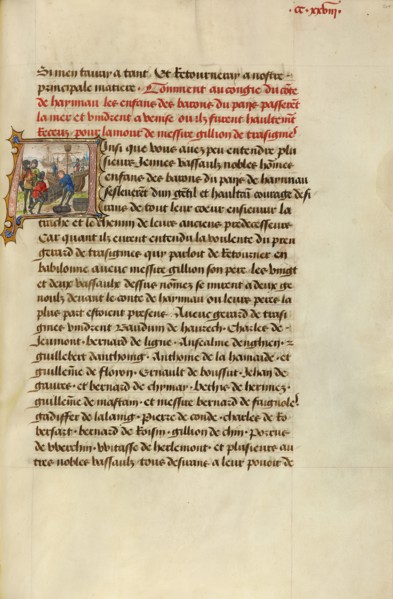 .cc.xxviii.
Si men tairay a tant Et Retourneray a nostre
principale matiere. Comment au congie du cote
de haynnau les enfans des barons du pays passerēt
la mer et vindrent a venise ou ilz furent haultemēt
Receuz pour lamour de messire gillion de trasignes
Ainsi que vous avez peu entendre plu
sieurs Jeunes vassaulz nobles hōmes
enfans des barons du pays de haynnau
seslevent dun gētil et haultain courage desi
rans de tout leur coeur ensieuvir la
trache et le chemin de leurs anciens predecesseurs
Car quant ilz eurent entendu la voulente du preu
gerard de trasignies qui parloit de Retourner en
babilonne avenc messire gillion son pere les vingt
et deux vassaulz dessus nōmez se mirent a deux ge
noulz devant le conte de haynau ou leurs peres la
plus part estoient presens Avenc gerard de trasi
gnies vindrent Bauduin de haurech. Charles de
Jeumont. bernard de ligne. Anseaulme denghien.
guillebert danthoing. Anthoine de la hamaide. et
guillēme de floyon. Ernault de boussut. Jehan de
gavres. et bernard de chymay. Bethis de hermez.
guillēme de mastain. et messire bernard de faignoles.
gadiffer de lalaing. Pierre de conde. charles de Ro
bersart. bernard de Roisin. gillion de chin. Porrus
de Wverchin. Witasse de berlemont. et plusieurs au
tres nobles vassaulz tous desirans a leur povoir de